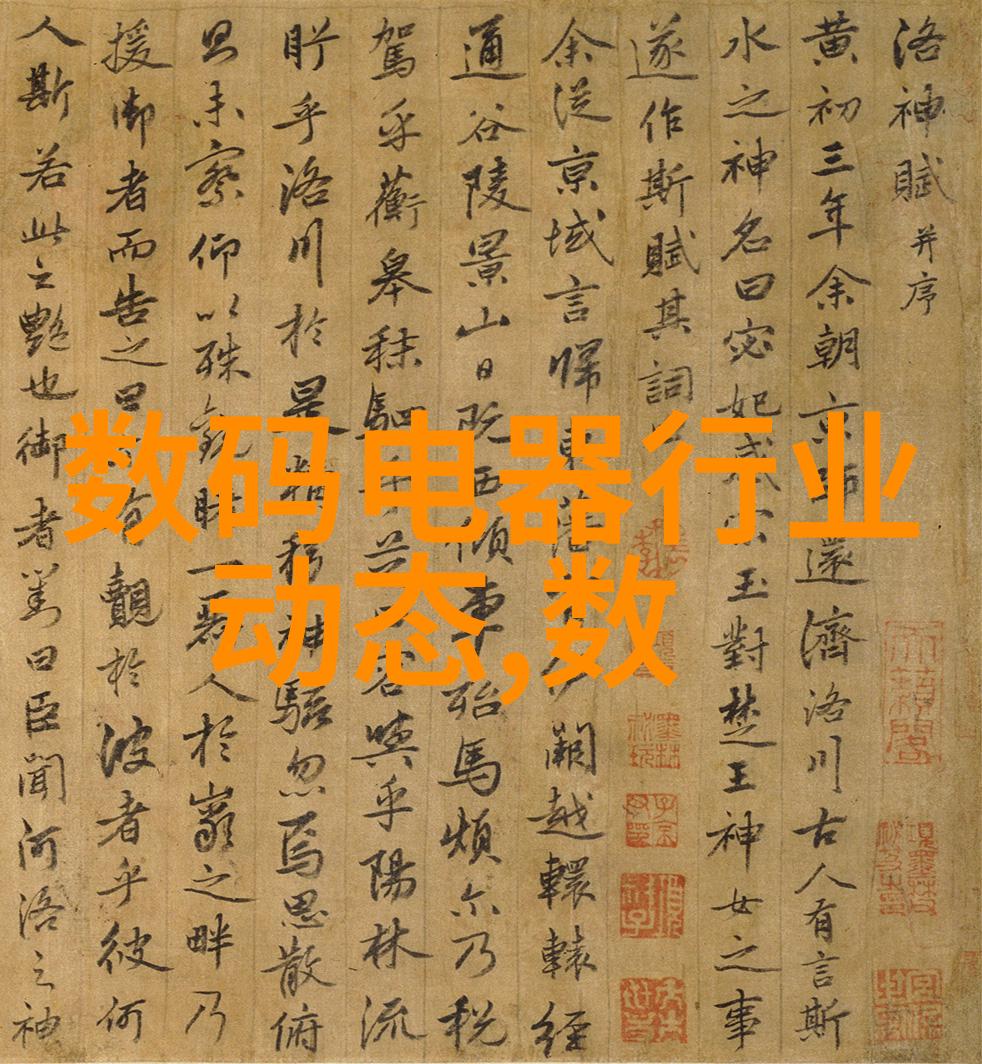 洛神賦并序
黄初三年余朝京師還濟洛川古人有言斯
水之神名曰宓妃感宋玉對楚王神女之事
遂作斯賦其詞曰
余從京域言歸東藩背伊闕越轘轅經
通谷陵景山日既西傾車殆馬煩尔乃税
駕乎蘅皋秣駟乎芝田容與乎陽林流
眄乎洛川於是精移神駭忽焉思散俯
則未察仰以殊觀睹一麗人於巖之畔乃
援御者而告之曰尔有覿於彼者乎彼何
人斯若此之艶也御者對曰臣聞河洛之神
数码电器行业
动态,数